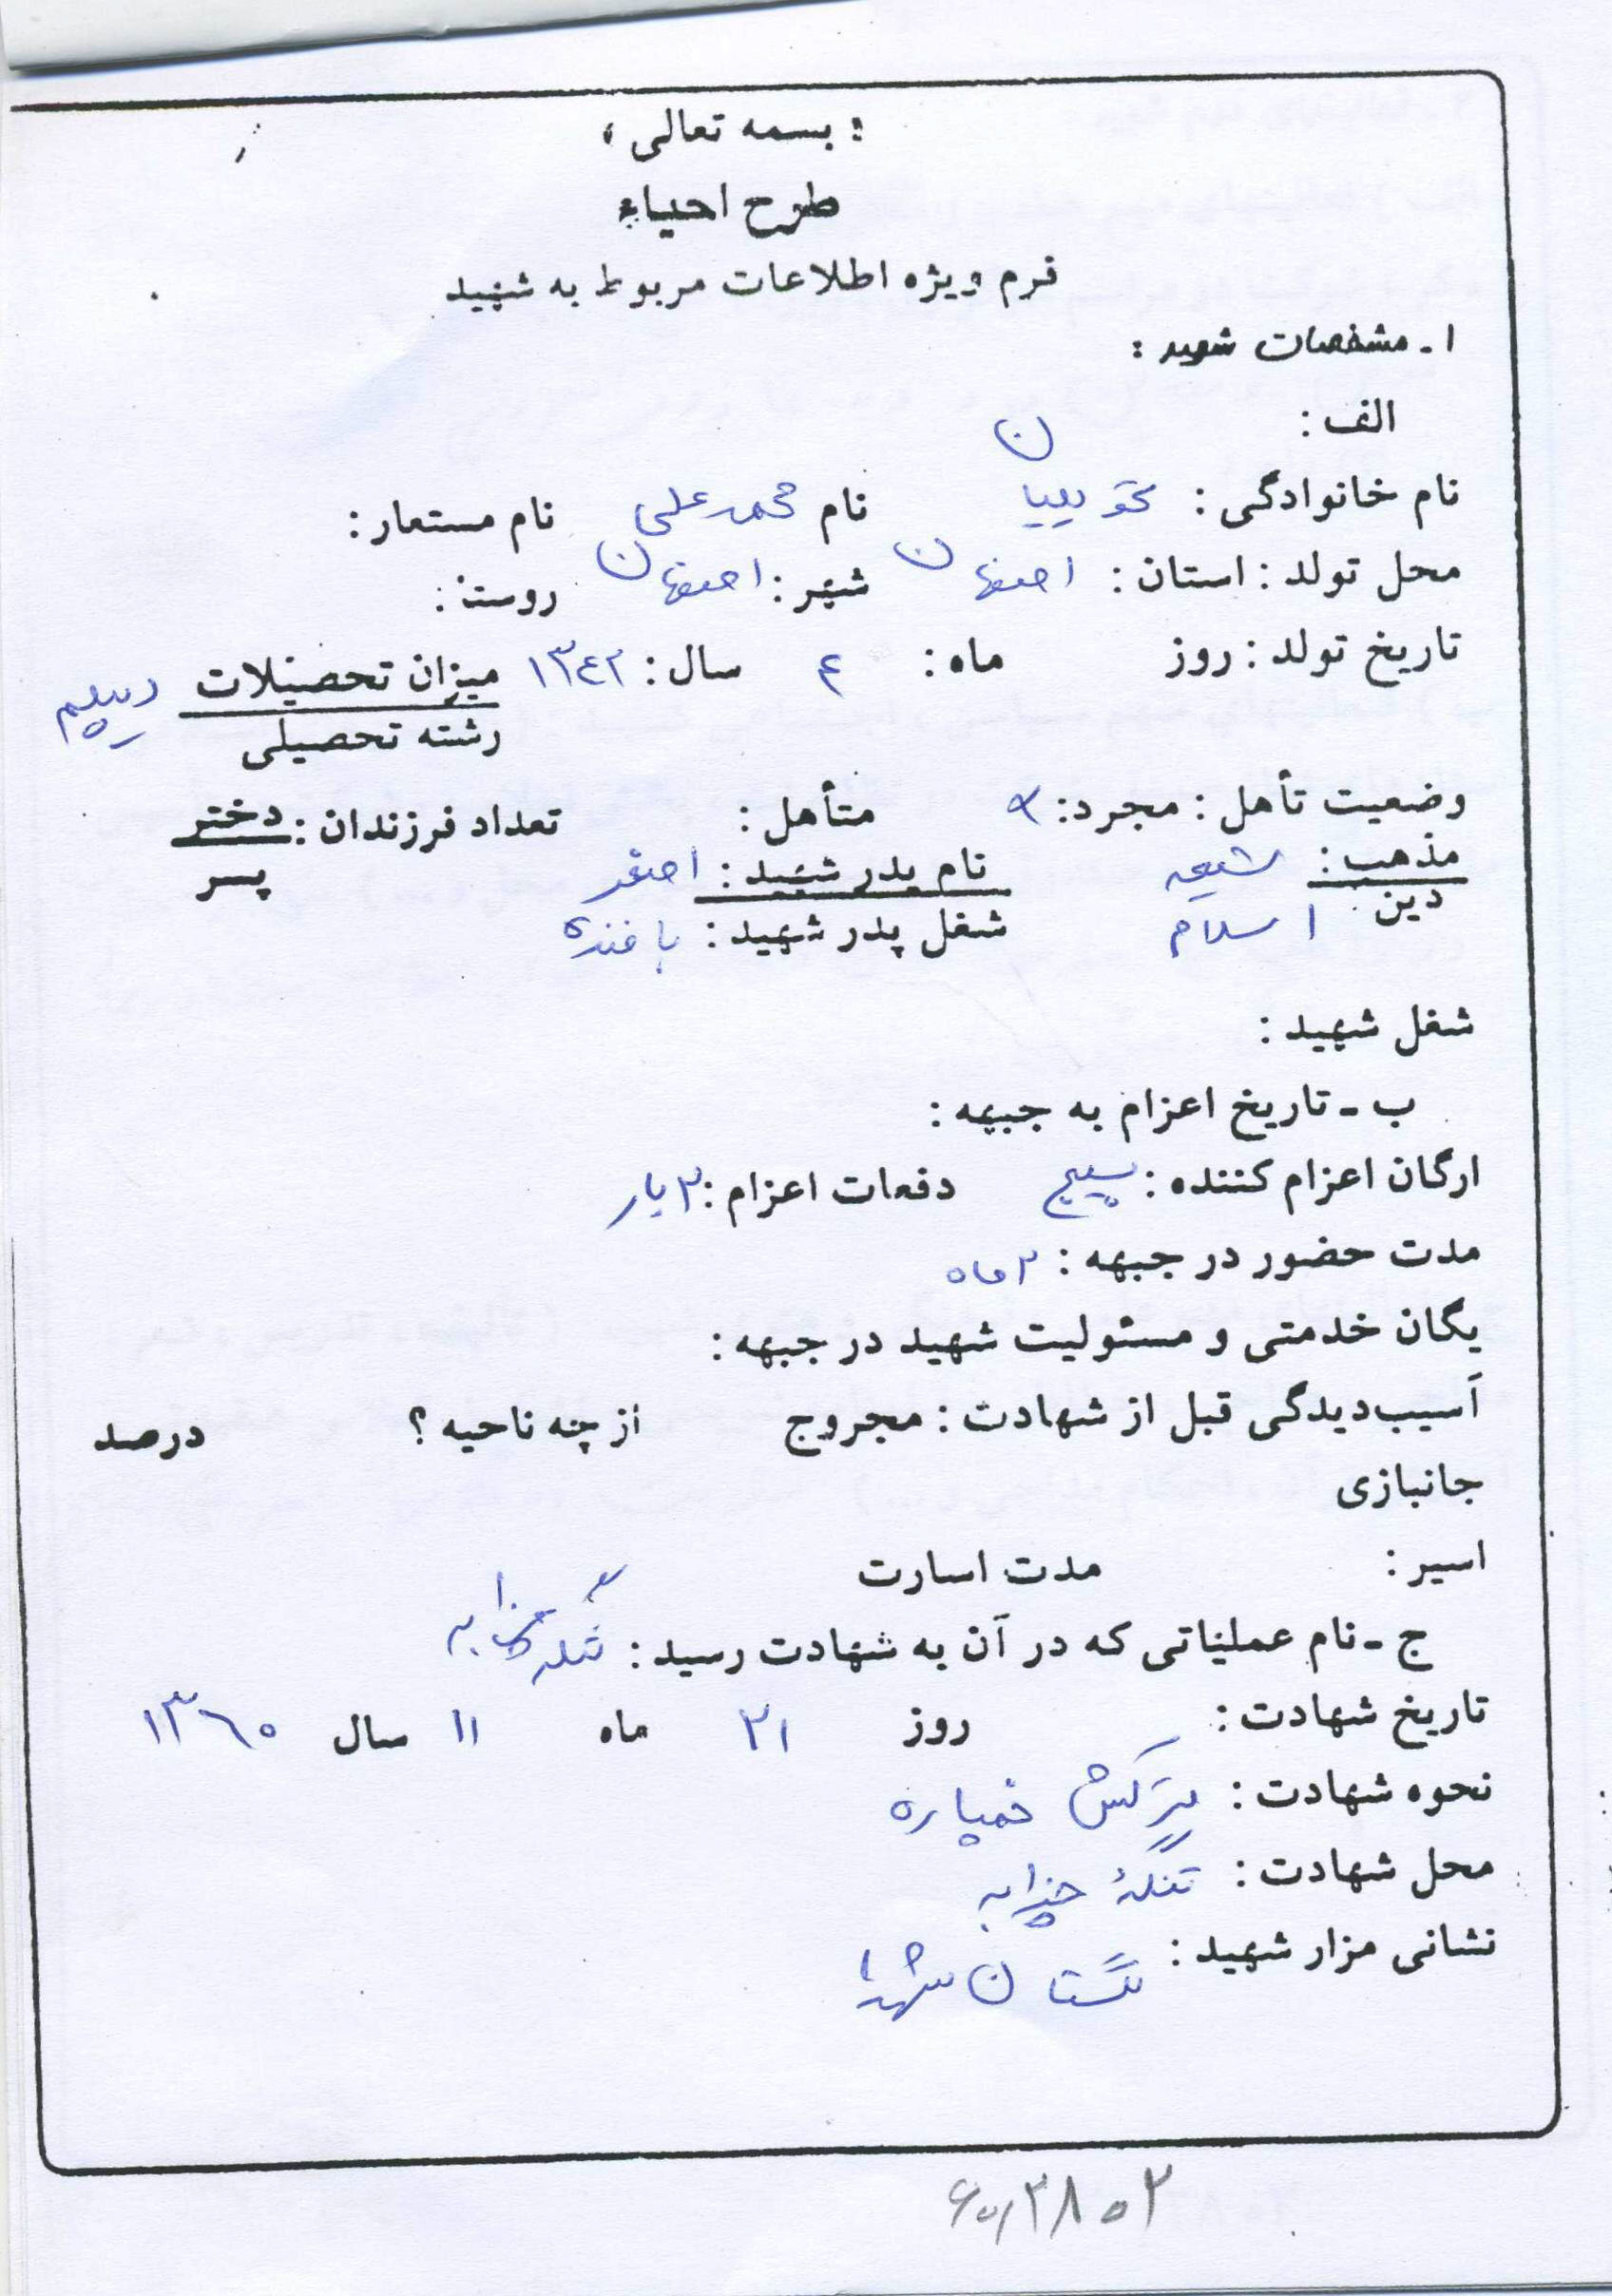 : بسمه تعالی :
طرح احیاء
فرم ویژه اطلاعات مربوط به شهید
۱ـ مشخصات شهید :
الف :
نام خانوادگی : نام محمدعلی نام مستعار :
محل تولد : استان : اصفهان شهر : اصفهان روستا :
تاریخ تولد : روز ماه : ۴ سال : ۱۳۴۲ میزان تحصیلات دیپلم
رشته تحصیلی
وضعیت تأهل : مجرد : متأهل : تعداد فرزندان : دختر
پسر
مذهب : شیعه نام پدر شهید : اصغر
دین اسلام شغل پدر شهید : بافنده
شغل شهید :
ب ـ تاریخ اعزام به جبهه :
ارگان اعزام کننده : بسیج دفعات اعزام : ۲ بار
مدت حضور در جبهه : ۲ ماه
یگان خدمتی و مسئولیت شهید در جبهه :
آسیب‌دیدگی قبل از شهادت : مجروح از چه ناحیه ؟ درصد
جانبازی
اسیر : مدت اسارت
ج ـ نام عملیاتی که در آن به شهادت رسید : تنگه چزابه
تاریخ شهادت : روز ۲۱ ماه ۱۱ سال ۱۳۶۰
نحوه شهادت : ترکش خمپاره
محل شهادت : تنگهٔ چزابه
نشانی مزار شهید : گلستان شهدا